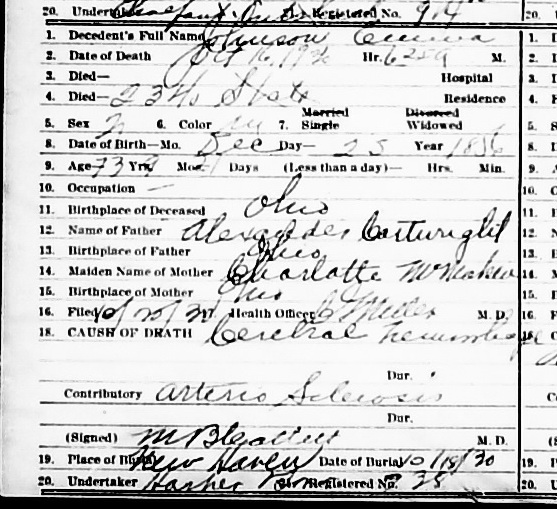 20. Undertaker Registered No. 94
1. Decedent's Full Name Johnson Emma
2. Date of Death Oct 16, 1930 Hr. M.
3. Died— Hospital
4. Died— State Residence
5. Sex 6. Color 7. Married Single Divorced Widowed
8. Date of Birth—Mo. Dec Day— 25 Year 1856
9. Age 73 Yrs. 9 Mos. Days (Less than a day)— Hrs. Min.
10. Occupation —
11. Birthplace of Deceased Ohio
12. Name of Father Alexander Cartwright
13. Birthplace of Father Ohio
14. Maiden Name of Mother Charlotte
15. Birthplace of Mother Ohio
16. Filed Health Officer Miller M. D.
18. CAUSE OF DEATH Cerebral hemorrhage
Dur.
Contributory Arterio Sclerosis
Dur.
(Signed) M. D.
19. Place of Burial New Haven Date of Burial 10/18/30
20. Undertaker Harper Registered No. 38